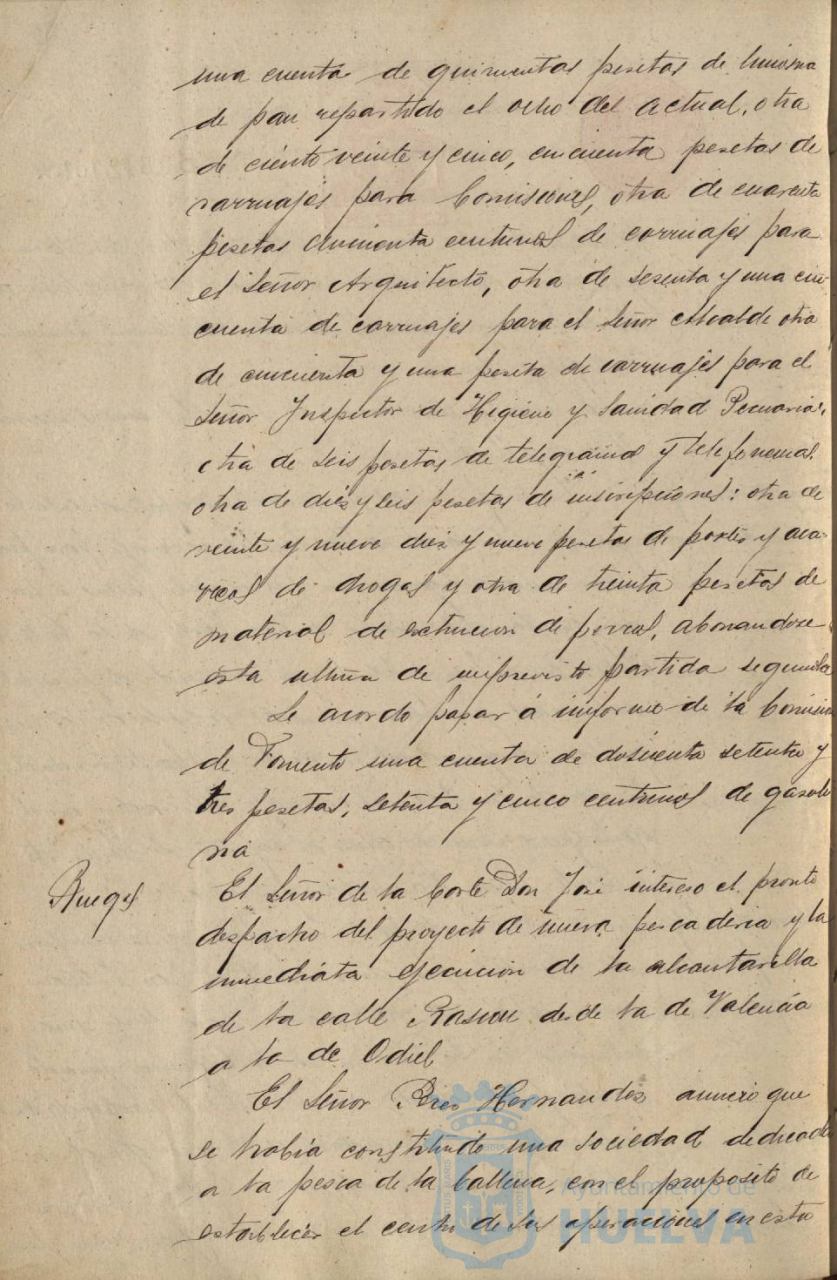 una cuenta de quinientas pesetas de limosna
de pan repartido el ocho del actual, otra
de ciento veinte y cinco, cincuenta pesetas de
carruajes para Comisiones, otra de cuarenta
pesetas cincuenta centimos de carruajes para
el Señor Arquitecto, otra de sesenta y una cin-
cuenta de carruajes para el Señor Alcalde otra
de cincuenta y una peseta de carruajes para el
Señor Inspector de Higiene y Sanidad Pecuaria,
otra de seis pesetas de telegramas y telefonemas
otra de diez y seis pesetas de inscripciones: otra de
veinte y nueve diez y nueve pesetas de portes y aca-
rreos de drogas y otra de treinta pesetas de
material de extincion de perros, abonandose
esta ultima de imprevisto partida segunda
Se acordo pasar á informe de la Comision
de Fomento una cuenta de doscienta setenta y
tres pesetas, setenta y cinco centimos de gasoli
na
Ruegos
El Señor de la Corte Don José intereso el pronto
despacho del proyecto de nueva pescaderia y la
inmediata ejecucion de la alcantarilla
de la calle Rascon desde la de Valencia
a la de Odiel
El Señor Hernandez anuncio que
se habia constituido una sociedad dedicada
a la pesca de la ballena, con el proposito de
establecer el centro de sus operaciones en esta
Ayuntamiento de
HUELVA